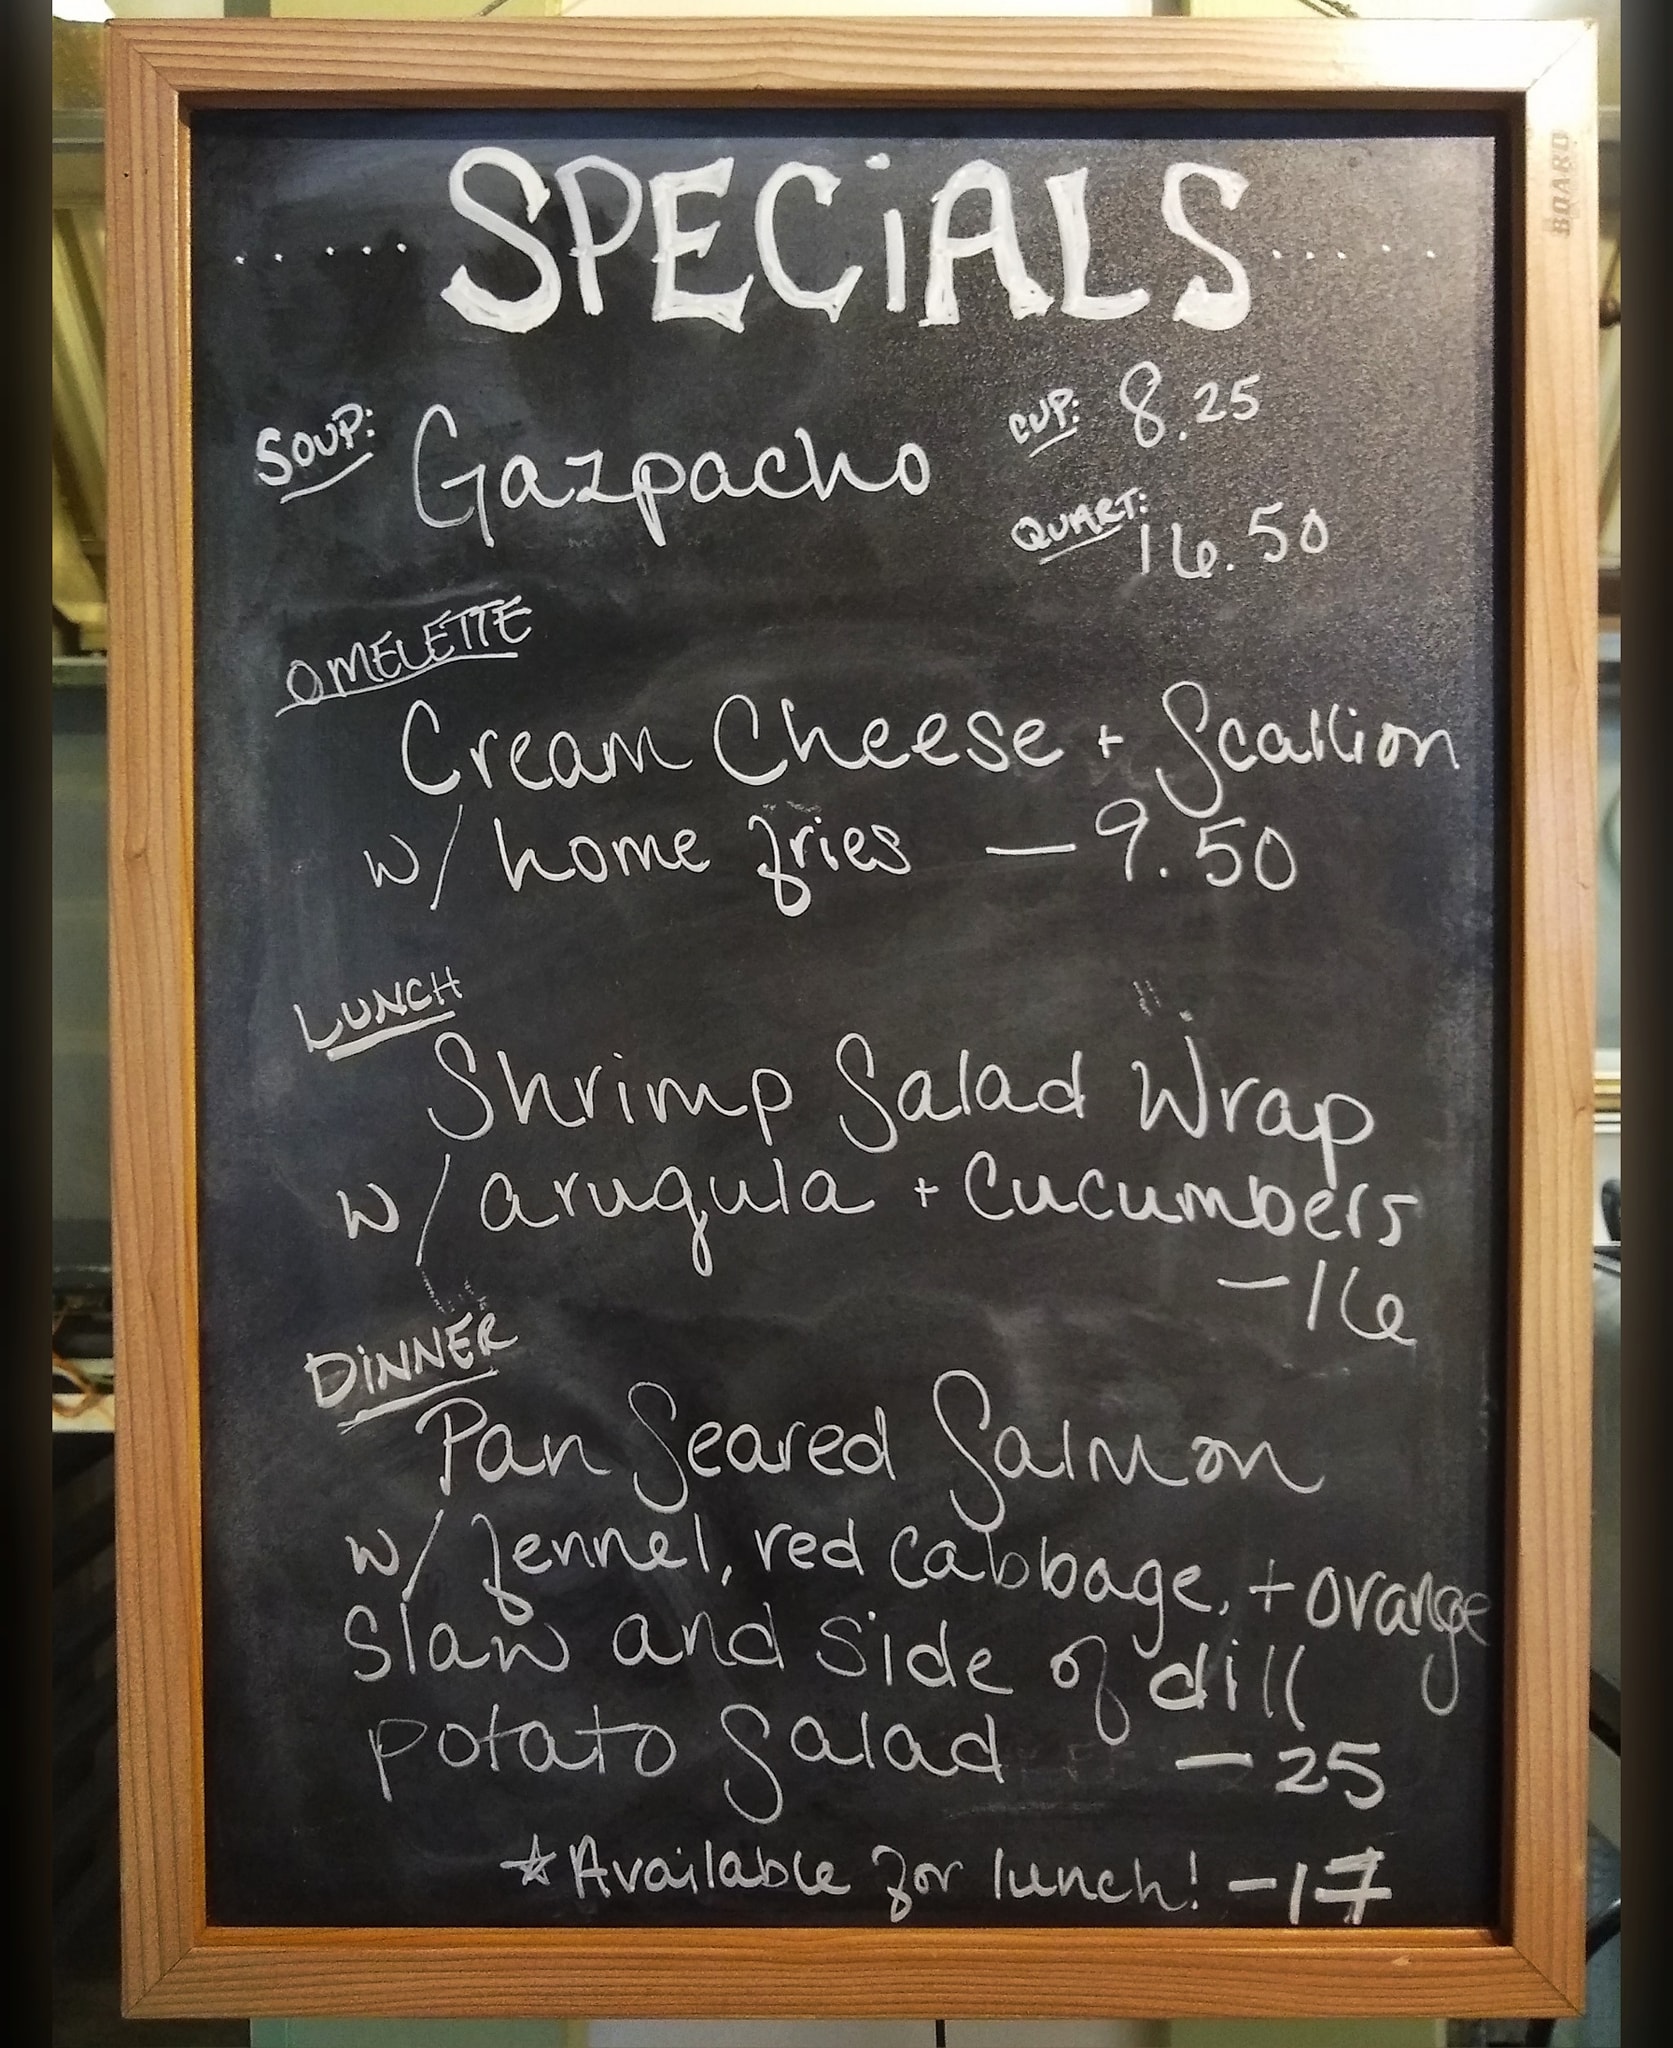 SPECiALS
SOUP: Gazpacho CUP: 8.25
QUART: 16.50
OMELETTE
Cream Cheese + Scallion
w/ home fries — 9.50
LUNCH
Shrimp Salad Wrap
w/ arugula + Cucumbers
— 16
DiNNER
Pan Seared Salmon
w/ fennel, red cabbage, + orange
Slaw and side of dill
potato Salad — 25
*Available for lunch! — 17
BOARD